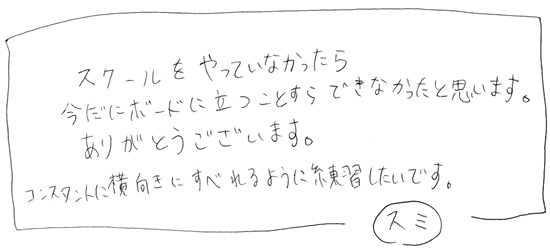 スクールを やっていなかったら
今だにボードに立つことすら できなかったと思います。
ありがとうございます。
コンスタントに横向きにすべれるように練習したいです。
スミ